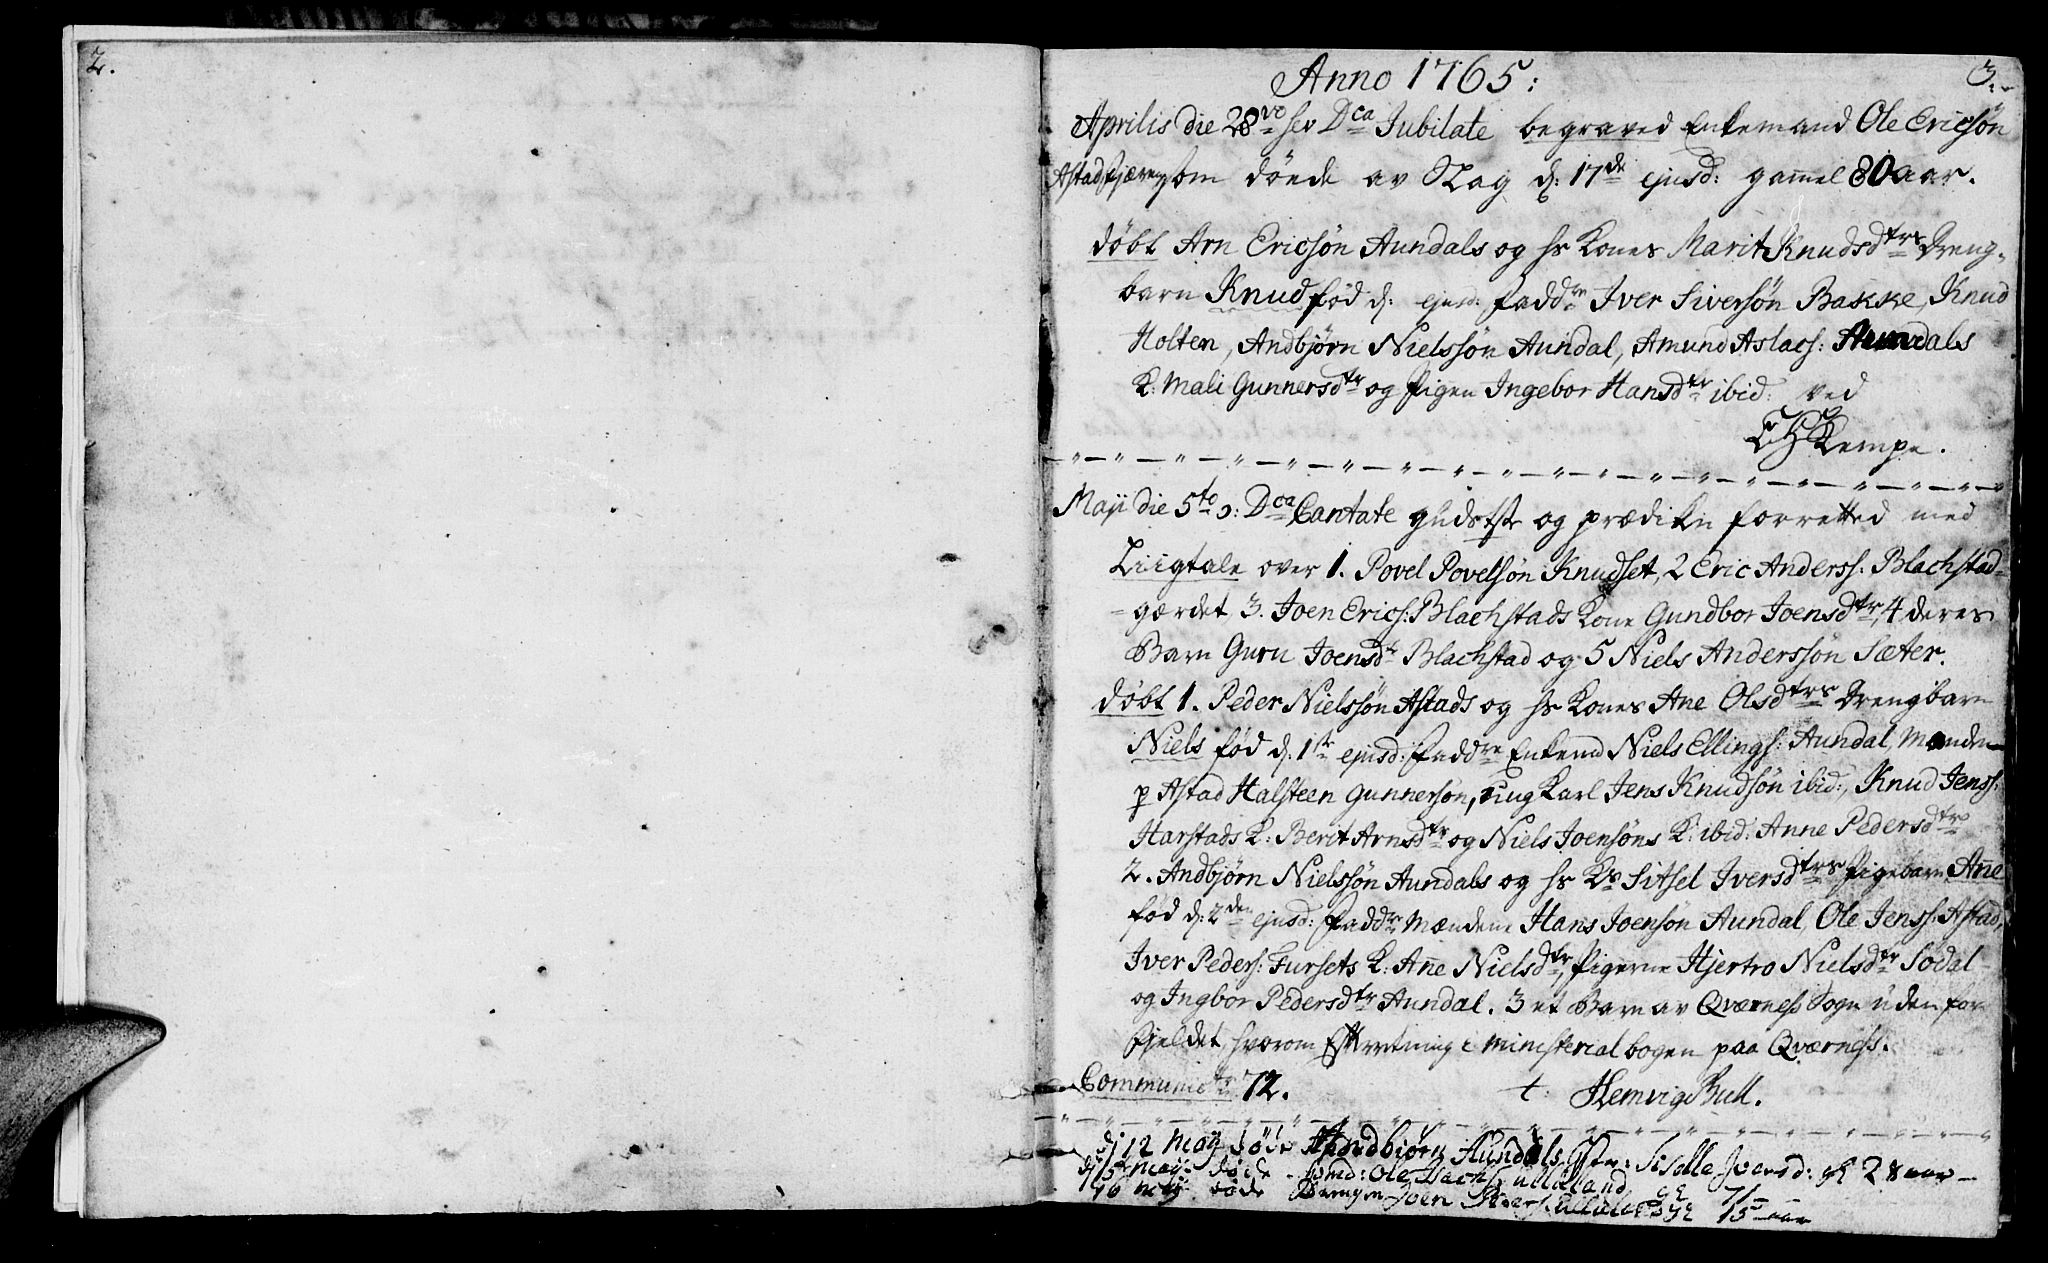 2.
3.
Anno 1765:
Aprilis die 28vo sev Dca Jubilate begraved Enkemand Ole Ericsøn
Astadfjæren som døede av Slag d: 17de ejusd: gamel 80 aar.
døbt Arn Ericsøn Aundals og hs Kones Marit Knudsdtrs Dreng-
barn Knud fød d: ejusd: Faddre Iver Siversøn Bakke, Knud
Holten, Andbjørn Nielssøn Aundal, Amund Aslacs: Aundals
K: Mali Gunnersdtr og Pigen Ingebor Hansdtr ibid: ved
Kempe.
Maji die 5to ɔ: Dca Cantate gudstste og prædiken forretted med
Liigtale over 1. Povel Povelsøn Knudset, 2 Eric Anderss: Blachstad-
-gærdet 3. Joen Erics: Blachstads Kone Gundbor Joensdtr, 4 deres
Barn Guru Joensdr Blachstad og 5 Niels Anderssøn Sæter.
døbt 1. Peder Nielssøn Astads og hs Kones Ane Olsdtrs Drengbarn
Niels fød d: 1ste ejusd: Faddre Enkemd Niels Ellings: Aundal, Manden
p Astad Halsteen Gunnersøn, ung Karl Jens Knudsøn ibid:, Knud Jenss:
Harstads K: Berit Arnsdtr og Niels Joensøns K: ibid: Anne Pedersdtr
2. Andbjørn Nielssøn Aundals og hs Ks Sitsel Iversdtrs Pigebarn Añe
fød d: 2den ejusd: Faddre Mændene Hans Joensøn Aundal, Ole Jenss: Astad,
Iver Peders: Fursets K: Añe Nielsdtr, Pigerne Hjertro Nielsdtr Sødal
og Ingbor Pedersdtr Aundal. 3 et Barn av Qværness Sogn uden for
Fjeldet, hvorom Efterretning i Ministerial bogen paa Qværness.
Communic 72. t. Hemvig Bull.
d: 12 Maÿ døde Andbiørn Aundals Sisselle Iversd: gl 28 aar -
d: 15 Maÿ døde Ole gl 71 -
16 Maÿ døde Drengen Joen gl 15 aar